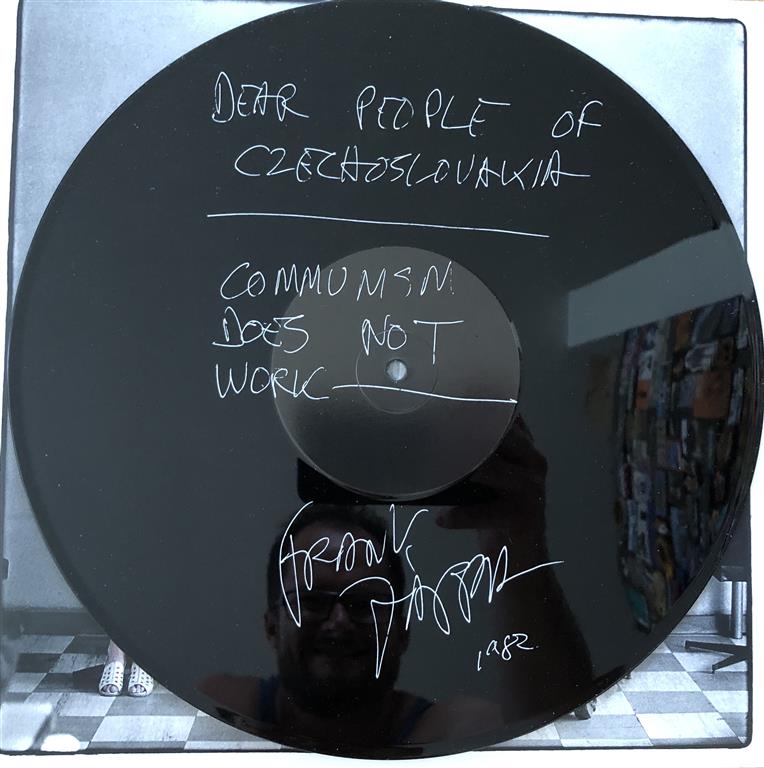 DEAR PEOPLE OF
CZECHOSLOVAKIA
COMMUNISM
DOES NOT
WORK
FRANK
ZAPPA
1982